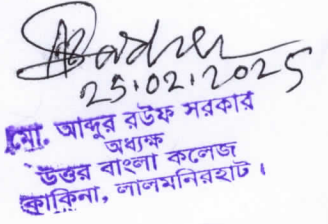 25.02.2025
মো. আব্দুর রউফ সরকার
অধ্যক্ষ
উত্তর বাংলা কলেজ
কাকিনা, লালমনিরহাট।